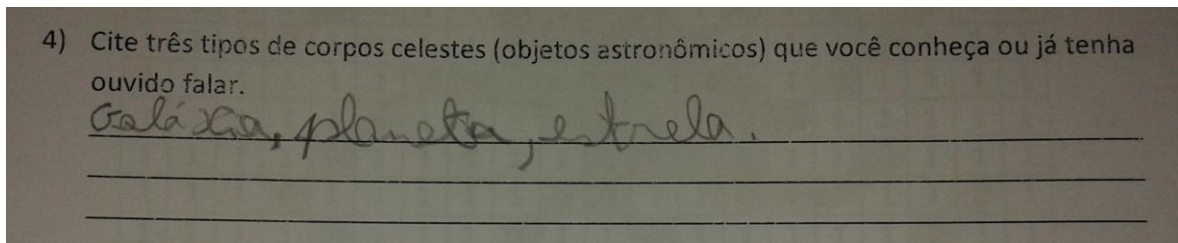 4) Cite três tipos de corpos celestes (objetos astronômicos) que você conheça ou já tenha
ouvido falar.
Galáxia, planeta, estrela.